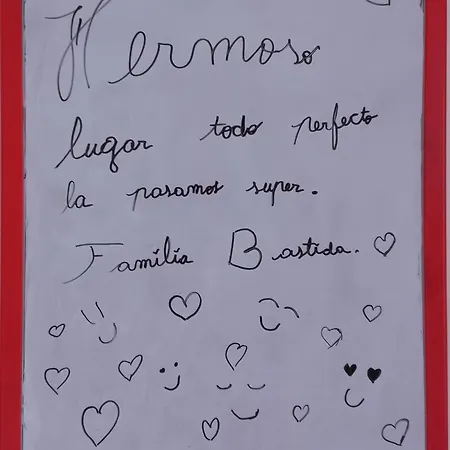 Hermoso
lugar todo perfecto
la pasamos super.
Familia Bastida.